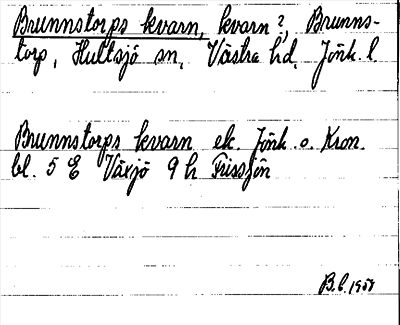 Brunnstorps kvarn, kvarn?, Brunns-
torp, Hultsjö sn, Västra hd, Jönk. l.
Brunnstorps kvarn ek. Jönk. o. Kron.
bl. 5 E Växjö 9 h Frissjön
B.C. 1958